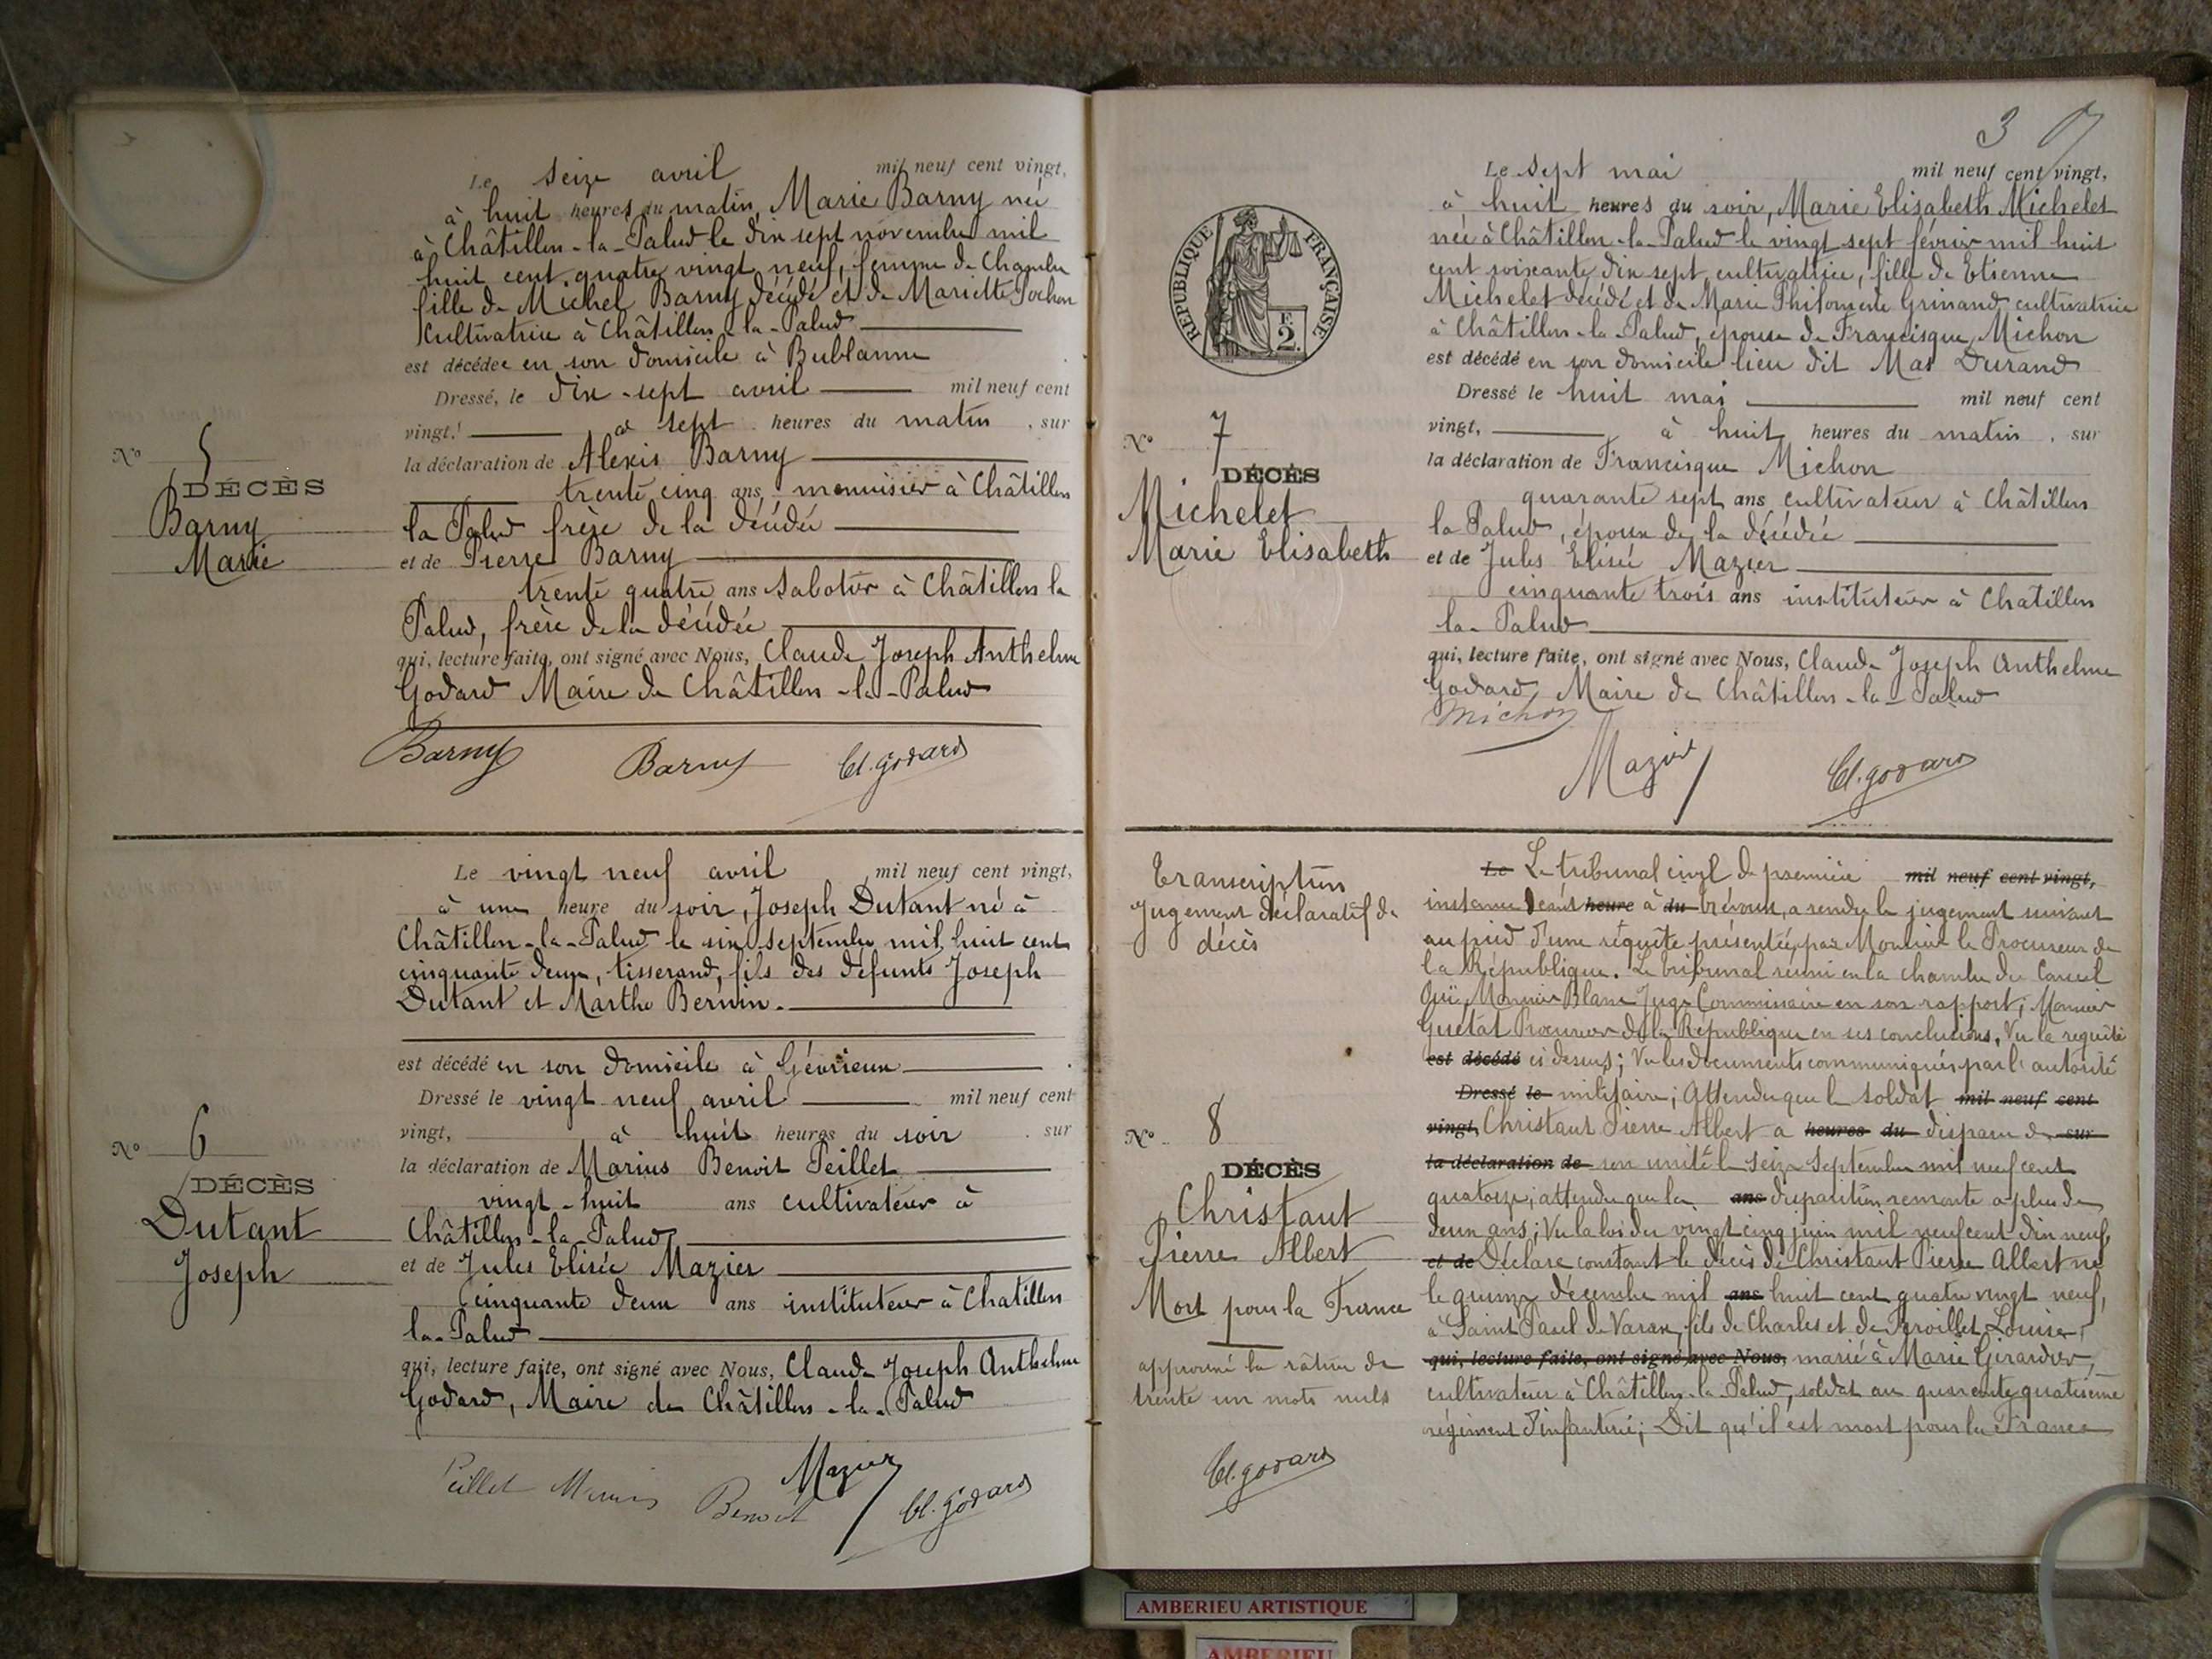 Le seize avril mil neuf cent vingt,
à huit heures du matin, Marie Barny née
à Châtillon-la-Palud le dix sept novembre mil
huit cent quatre vingt neuf, femme de Chambre
fille de Michel Barny décédé et de Mariette Pochon
Cultivatrice à Châtillon-la-Palud
est décédée en son domicile à Bublanne
Dressé, le dix-sept avril mil neuf cent
vingt, à sept heures du matin, sur
la déclaration de Alexis Barny
trente cinq ans, menuisier à Châtillon
la Palud frère de la décédée
et de Pierre Barny
trente quatre ans sabotier à Châtillon la
Palud, frère de la décédée
qui, lecture faite, ont signé avec Nous, Claude Joseph Anthelme
Godard Maire de Châtillon-la-Palud
Barny Barny Cl. Godard
N° 5
DÉCÈS
Barny
Marie
Le vingt neuf avril mil neuf cent vingt,
à une heure du soir, Joseph Dutant né à
Châtillon-la-Palud le six septembre mil huit cent
cinquante deux, tisserand, fils des défunts Joseph
Dutant et Marthe Bernin.
est décédé en son domicile à Gévrieux
Dressé le vingt neuf avril mil neuf cent
vingt, à huit heures du soir, sur
la déclaration de Marius Benoit Peillet
vingt-huit ans cultivateur à
Châtillon-la-Palud
et de Jules Elisée Mazier
cinquante deux ans instituteur à Chatillon
la-Palud
qui, lecture faite, ont signé avec Nous, Claude Joseph Anthelme
Godard, Maire de Châtillon-la-Palud
Peillet Marius Benoit Mazier Cl. Godard
N° 6
DÉCÈS
Dutant
Joseph
3
RÉPUBLIQUE FRANÇAISE
F. 2.
Le sept mai mil neuf cent vingt,
à huit heures du soir, Marie Elisabeth Michelet
née à Châtillon-la-Palud le vingt sept février mil huit
cent soixante dix sept, cultivatrice, fille de Etienne
Michelet décédé et de Marie Philomène Grinand cultivatrice
à Châtillon-la-Palud, épouse de Francisque Michon
est décédé en son domicile lieu dit Mas Durand
Dressé le huit mai mil neuf cent
vingt, à huit heures du matin, sur
la déclaration de Francisque Michon
quarante sept ans cultivateur à Châtillon
la Palud, époux de la décédée
et de Jules Elisée Mazier
cinquante trois ans instituteur à Chatillon
la-Palud
qui, lecture faite, ont signé avec Nous, Claude Joseph Anthelme
Godard, Maire de Châtillon-la-Palud
Michon
Mazier Cl. Godard
N° 7
DÉCÈS
Michelet
Marie Elisabeth
Transcription
Jugement déclaratif de
décès
N° 8
DÉCÈS
Christaut
Pierre Albert
Mort pour la France
approuvé la râture de
trente un mots nuls
Cl. Godard
Le Le tribunal civil de première mil neuf cent vingt,
instance séant heure à du Trévoux, a rendu le jugement suivant
au pied d'une réquête présentée par Monsieur le Procureur de
la République. Le tribunal réuni en la chambre du Conseil
Ouï Monsieur Blanc Juge Commissaire en son rapport; Monsieur
Guetat Procureur de la République en ses conclusions, Vu la requête
est décédé ci dessus; Vu les documents communiqués par l'autorité
Dressé le militaire; Attendu que le soldat mil neuf cent
vingt, Christaut Pierre Albert a heures du disparu de sur
la déclaration de son unité le seize septembre mil neuf cent
quatorze; attendu que la ans disparition remonte a plus de
deux ans; Vu la loi du vingt cinq juin mil neuf cent dix neuf,
et de Déclare constant le décès de Christaut Pierre Albert né
le quinze décembre mil ans huit cent quatre vingt neuf,
à Saint Paul de Varax, fils de Charles et de Perroillet Louise,
qui, lecture faite, ont signé avec Nous, marié à Marie Girardier,
cultivateur à Châtillon-la-Palud, soldat au quarante quatrième
régiment d'infanterie; Dit qu'il est mort pour la France
AMBERIEU ARTISTIQUE
AMBERIEU